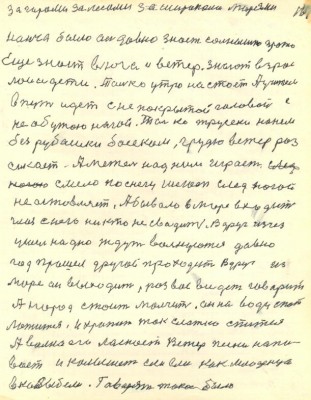 за горами за лесами за широкими морями
было он давно знает солнышко
Еще знает вьюга и ветер. Знают взрос
лые и дети. Только утро настает А
в путь идет с не покрытой головой с
не обутою ногой. Только трусики на нем
без рубашки босеком, грудью ветер раз
секает. А метел над ним играет. след
смело по снегу шегает след ногой
не оставляет, А бывало в море входит
глаз с него никто не сводит. Вдруг изчез
ушел на дно ждут волнуются давно
год прошел другой проходит Вдруг из
моря он выходит, раз вас видет говорит
А народ стоит молчит. он на воду спать
ложится, и храпит так сладко спится
А волна его ласкает Ветер песни напе
вает и колышет он спит как младенца
в колыбели. Говорят такое было